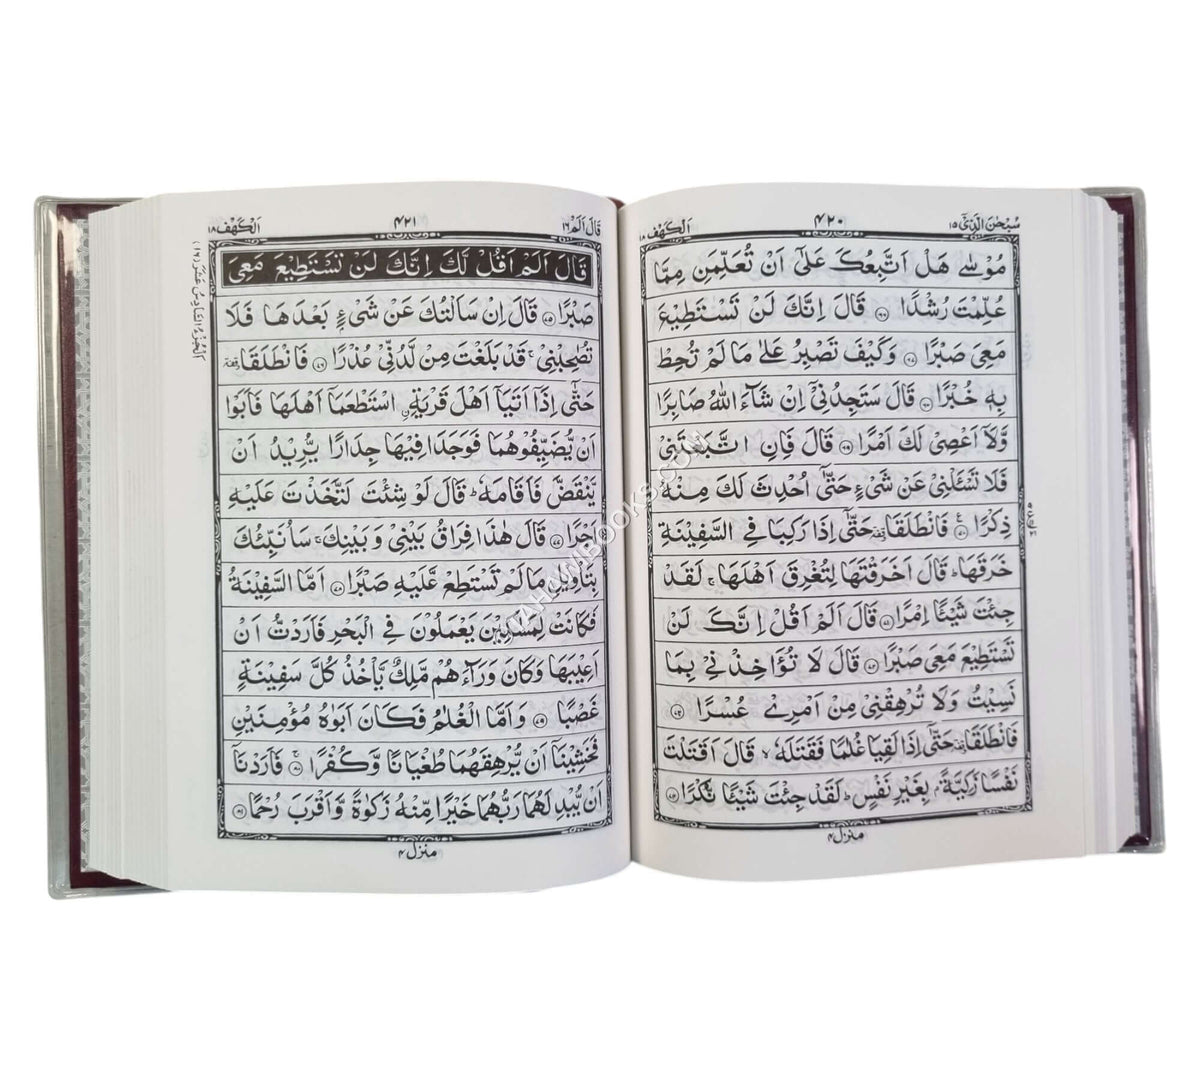 سُبْحٰنَ الَّذِیْۤ ۱۵
۴۲۰
اَلْكَهْف ۱۸
مُوْسٰى هَلْ اَتَّبِعُكَ عَلٰۤى اَنْ تُعَلِّمَنِ مِمَّا
عُلِّمْتَ رُشْدًا ﴿۶۶﴾ قَالَ اِنَّكَ لَنْ تَسْتَطِیْعَ
مَعِیَ صَبْرًا ﴿۶۷﴾ وَ كَیْفَ تَصْبِرُ عَلٰى مَا لَمْ تُحِطْ
بِهٖ خُبْرًا ﴿۶۸﴾ قَالَ سَتَجِدُنِیْۤ اِنْ شَآءَ اللّٰهُ صَابِرًا
وَّ لَاۤ اَعْصِیْ لَكَ اَمْرًا ﴿۶۹﴾ قَالَ فَاِنِ اتَّبَعْتَنِیْ
فَلَا تَسْـَٔلْنِیْ عَنْ شَیْءٍ حَتّٰۤى اُحْدِثَ لَكَ مِنْهُ
ذِكْرًا ﴿۷۰﴾ فَانْطَلَقَا حَتّٰۤى اِذَا رَكِبَا فِی السَّفِیْنَةِ
خَرَقَهَا ؕ قَالَ اَخَرَقْتَهَا لِتُغْرِقَ اَهْلَهَا ۚ لَقَدْ
جِئْتَ شَیْـًٔا اِمْرًا ﴿۷۱﴾ قَالَ اَلَمْ اَقُلْ اِنَّكَ لَنْ
تَسْتَطِیْعَ مَعِیَ صَبْرًا ﴿۷۲﴾ قَالَ لَا تُؤَاخِذْنِیْ بِمَا
نَسِیْتُ وَ لَا تُرْهِقْنِیْ مِنْ اَمْرِیْ عُسْرًا ﴿۷۳﴾
فَانْطَلَقَا حَتّٰۤى اِذَا لَقِیَا غُلٰمًا فَقَتَلَهٗ ۙ قَالَ اَقَتَلْتَ
نَفْسًا زَكِیَّةًۢ بِغَیْرِ نَفْسٍ ؕ لَقَدْ جِئْتَ شَیْـًٔا نُّكْرًا ﴿۷۴﴾
منزل ۴
قَالَ اَلَمْ ۱۶
۴۲۱
اَلْكَهْف ۱۸
اَلْجُزْءُ السَّادِسُ عَشَرَ (۱۶)
قَالَ اَلَمْ اَقُلْ لَّكَ اِنَّكَ لَنْ تَسْتَطِیْعَ مَعِیَ
صَبْرًا ﴿۷۵﴾ قَالَ اِنْ سَاَلْتُكَ عَنْ شَیْءٍۭ بَعْدَهَا فَلَا
تُصٰحِبْنِیْ ۚ قَدْ بَلَغْتَ مِنْ لَّدُنِّیْ عُذْرًا ﴿۷۶﴾ فَانْطَلَقَا
حَتّٰۤى اِذَاۤ اَتَیَاۤ اَهْلَ قَرْیَةِ ِ۟اسْتَطْعَمَاۤ اَهْلَهَا فَاَبَوْا
اَنْ یُّضَیِّفُوْهُمَا فَوَجَدَا فِیْهَا جِدَارًا یُّرِیْدُ اَنْ
یَّنْقَضَّ فَاَقَامَهٗ ؕ قَالَ لَوْ شِئْتَ لَتَّخَذْتَ عَلَیْهِ
اَجْرًا ﴿۷۷﴾ قَالَ هٰذَا فِرَاقُ بَیْنِیْ وَ بَیْنِكَ ۚ سَاُنَبِّئُكَ
بِتَاْوِیْلِ مَا لَمْ تَسْتَطِعْ عَّلَیْهِ صَبْرًا ﴿۷۸﴾ اَمَّا السَّفِیْنَةُ
فَكَانَتْ لِمَسٰكِیْنَ یَعْمَلُوْنَ فِی الْبَحْرِ فَاَرَدْتُّ اَنْ
اَعِیْبَهَا وَ كَانَ وَرَآءَهُمْ مَّلِكٌ یَّاْخُذُ كُلَّ سَفِیْنَةٍ
غَصْبًا ﴿۷۹﴾ وَ اَمَّا الْغُلٰمُ فَكَانَ اَبَوٰهُ مُؤْمِنَیْنِ
فَخَشِیْنَاۤ اَنْ یُّرْهِقَهُمَا طُغْیَانًا وَّ كُفْرًا ﴿۸۰﴾ فَاَرَدْنَاۤ
اَنْ یُّبْدِلَهُمَا رَبُّهُمَا خَیْرًا مِّنْهُ زَكٰوةً وَّ اَقْرَبَ رُحْمًا ﴿۸۱﴾
منزل ۴